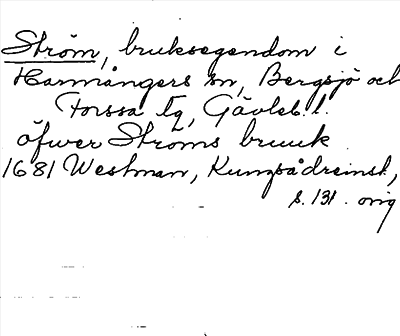 Ström, bruksegendom i
Harmångers sn, Bergsjö och
Forssa tg, Gävleb. l.
öfwer Ströms bruuk
1681 Westman, Kungsådreinst,
s. 131. orig